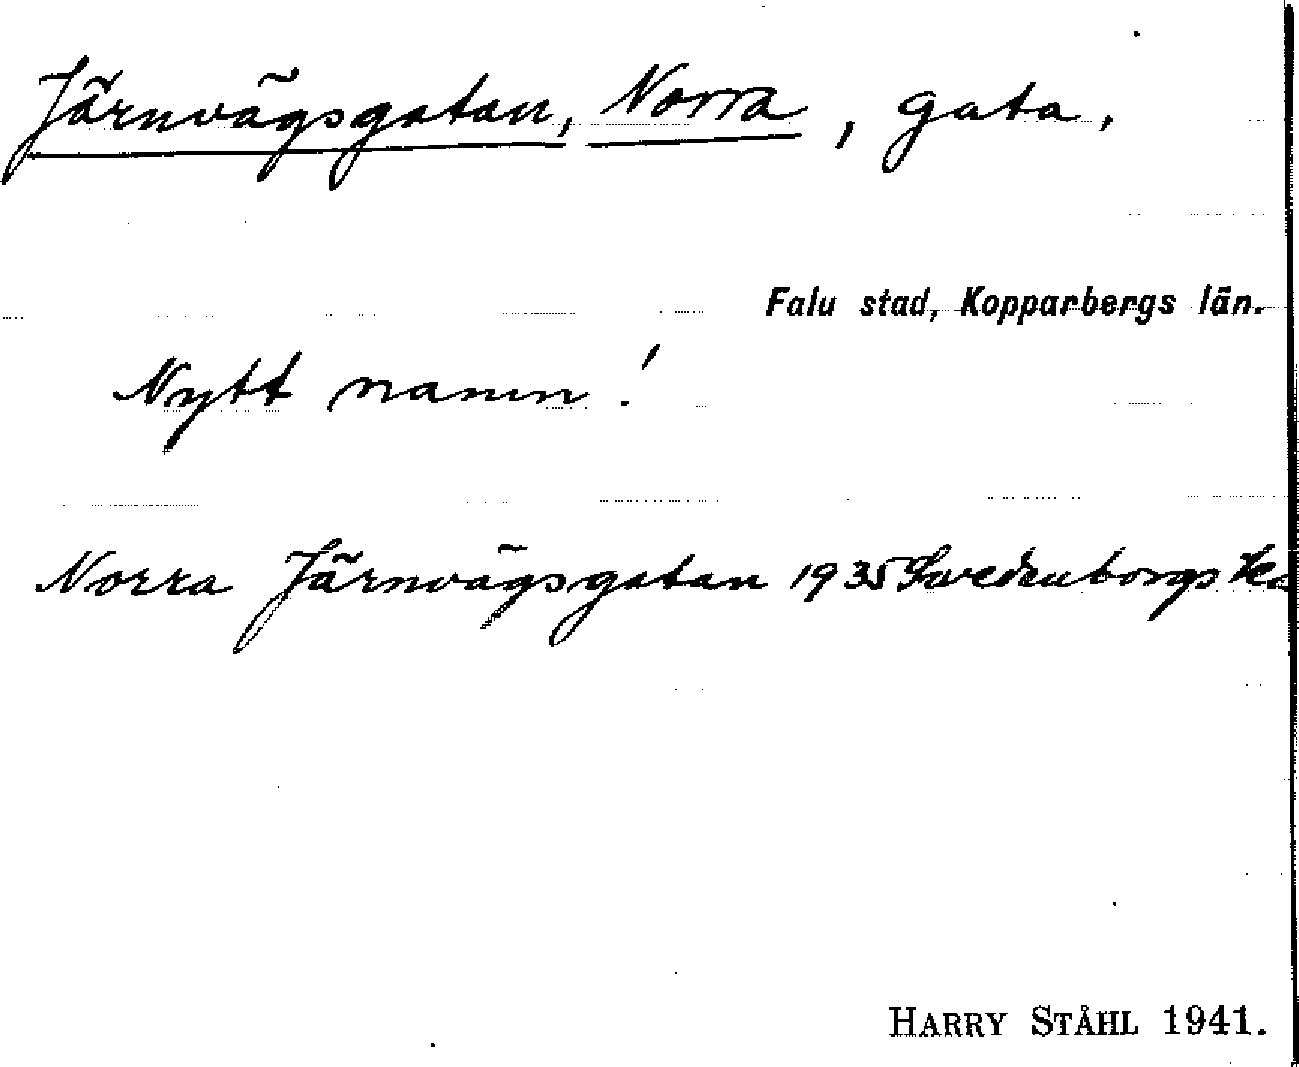 Järnvägsgatan, Norra, gata.
Falu stad, Kopparbergs län.
Nytt namn!
Norra Järnvägsgatan 1935 Swedenborgs
HARRY STÅHL 1941.